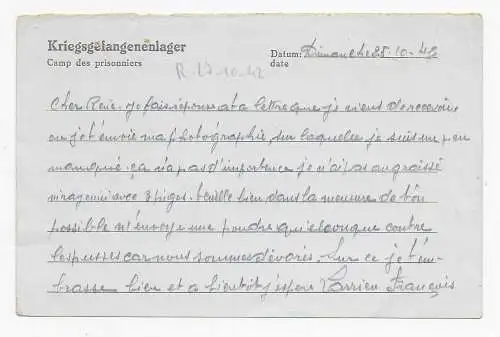 Kriegsgefangenenlager
Camp des prisonniers
Datum: Dimanche 25-10-42
date
R. 27-10-42
Cher René. Je fais réponse à ta lettre que je viens de recevoir
ou je t'envoie ma photographie, sur laquelle je suis un peu
manqué. ça n'a pas d'importance je n'ai pas engraissé
ni rajeuni avec 3 piges. veuille bien dans la mesure de ton
possible m'envoyer une poudre quelconque contre
les puces car nous sommes dévorés. Sur ce je t'em-
brasse bien et a bientôt j'espère Larrieu François